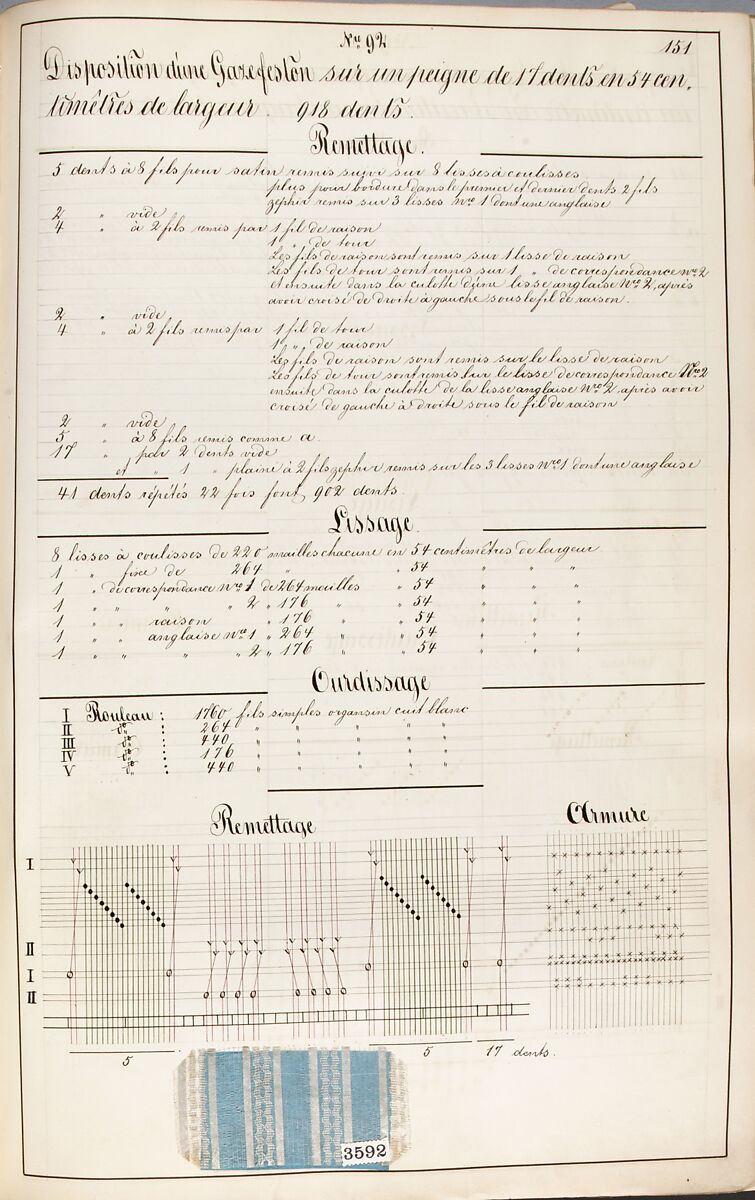 Nro 92
151
Disposition d'une Gaze feston sur un peigne de 17 dents en 54 cen.
timètres de largeur. 918 dents.
Remettage.
5 dents à 8 fils pour satin remis suivi sur 8 lisses à coulisses
plus pour bordure dans le premier et dernier dents 2 fils
zephir remis sur 3 lisses Nro 1 dont une anglaise
2 " vide
4 " à 2 fils remis par 1 fil de raison
1 " de tour
Les fils de raison sont remis sur 1 lisse de raison
Les fils de tour sont remis sur 1 " de correspondance Nro 2
et ensuite dans la culotte d'une lisse anglaise Nro 2, après
avoir croisé de droite à gauche sous le fil de raison.
2 " vide
4 " à 2 fils remis par 1 fil de tour
1 " de raison
Les fils de raison sont remis sur le lisse de raison
Les fils de tour sont remis sur le lisse de correspondance Nro 2
ensuite dans la culotte de la lisse anglaise Nro 2, après avoir
croisé de gauche à droite sous le fil de raison
2 " vide
5 " à 8 fils remis comme a.
17 " par 2 dents vide
et " 1 " plaine à 2 fils zephir remis sur les 3 lisses Nro 1 dont une anglaise
41 dents répétés 22 fois font 902 dents.
Lissage.
8 lisses à coulisses de 220 mailles chacune en 54 centimètres de largeur
1 " fixe de 264 " " 54 " " "
1 " de correspondance Nro 1 de 264 mailles " 54 " " "
1 " " " " 2 " 176 " " 54 " " "
1 " " raison " 176 " " 54 " " "
1 " " anglaise Nro 1 " 264 " " 54 " " "
1 " " " " 2 " 176 " " 54 " " "
Ourdissage
I Rouleau : 1760 fils simples organsin cuit blanc
II do : 264 " " " " "
III do : 440 " " " " "
IV do : 176 " " " " "
V do : 440 " " " " "
Remettage
Armure
I
II
I
II
5
5
17 dents.
3592